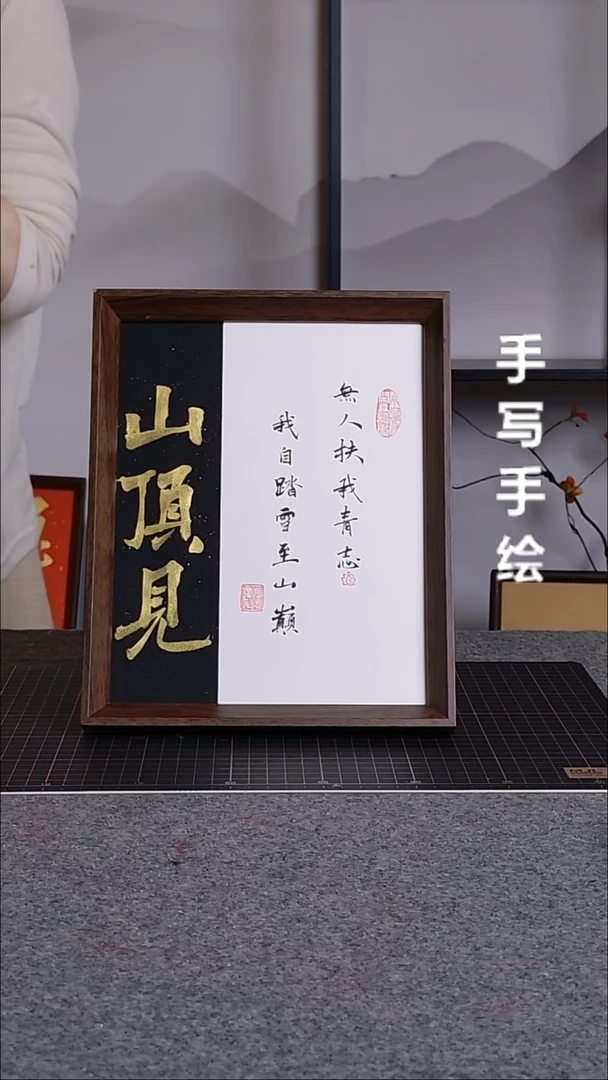 山頂見
無人扶我青志
我自踏雪至山巔
手写手绘